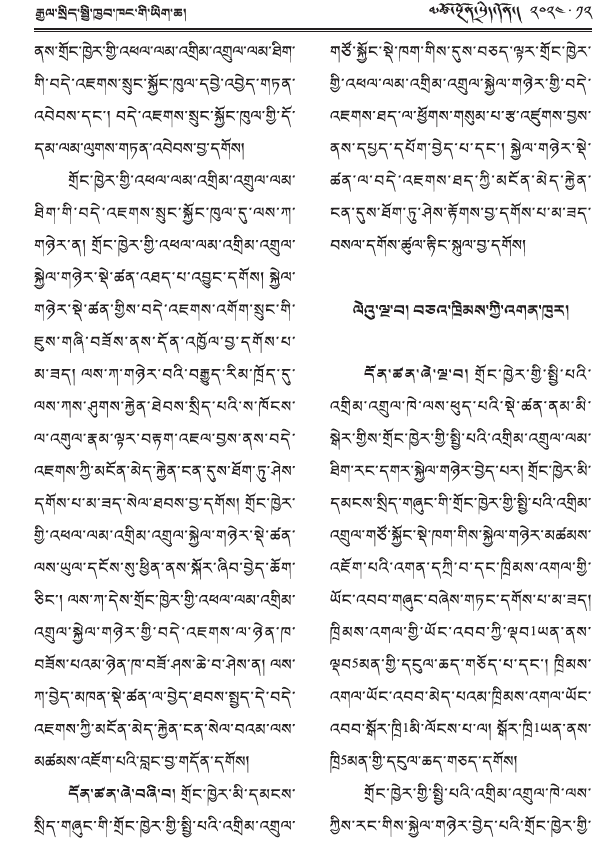 རྒྱལ་སྲིད་སྤྱི་ཁྱབ་ཁང་གི་ཡིག་ཆ།
༢༠༢༤ · ༡༢
ནས་གྲོང་ཁྱེར་གྱི་འཕལ་ལམ་འགྲིམ་འགྲུལ་ལམ་ཐིག་
གི་བདེ་འཇགས་སྲུང་སྐྱོང་ཁུལ་དབྱེ་འབྱེད་གཏན་
འབེབས་དང་། བདེ་འཇགས་སྲུང་སྐྱོང་ཁུལ་གྱི་དོ་
དམ་ལམ་ལུགས་གཏན་འབེབས་བྱ་དགོས།
གྲོང་ཁྱེར་གྱི་འཕལ་ལམ་འགྲིམ་འགྲུལ་ལམ་
ཐིག་གི་བདེ་འཇགས་སྲུང་སྐྱོང་ཁུལ་དུ་ལས་ཀ་
གཉེར་ན། གྲོང་ཁྱེར་གྱི་འཕལ་ལམ་འགྲིམ་འགྲུལ་
སྐྱེལ་གཉེར་སྡེ་ཚན་འཐད་པ་འབྱུང་དགོས། སྐྱེལ་
གཉེར་སྡེ་ཚན་གྱིས་བདེ་འཇགས་འགོག་སྲུང་གི་
ཇུས་གཞི་བཟོས་ནས་དོན་འཁྱོལ་བྱ་དགོས་པ་
མ་ཟད། ལས་ཀ་གཉེར་བའི་བརྒྱུད་རིམ་ཁྲོད་དུ་
ལས་ཀས་ཤུགས་རྐྱེན་ཐེབས་སྲིད་པའི་ས་ཁོངས་
ལ་འགུལ་རྣམ་ལྟར་བརྟག་འཇལ་བྱས་ནས་བདེ་
འཇགས་ཀྱི་མངོན་མེད་རྐྱེན་ངན་དུས་ཐོག་ཏུ་ཤེས་
དགོས་པ་མ་ཟད་སེལ་ཐབས་བྱ་དགོས། གྲོང་ཁྱེར་
གྱི་འཕལ་ལམ་འགྲིམ་འགྲུལ་སྐྱེལ་གཉེར་སྡེ་ཚན་
ལས་ཡུལ་དངོས་སུ་ཕྱིན་ནས་སྐོར་ཞིབ་བྱེད་ཆོག་
ཅིང་། ལས་ཀ་དེས་གྲོང་ཁྱེར་གྱི་འཕལ་ལམ་འགྲིམ་
འགྲུལ་སྐྱེལ་གཉེར་གྱི་བདེ་འཇགས་ལ་ཉེན་ཁ་
བཟོས་པའམ་ཉེན་ཁ་བཟོ་ཤས་ཆེ་བ་ཤེས་ན། ལས་
ཀ་བྱེད་མཁན་སྡེ་ཚན་ལ་བྱེད་ཐབས་སྤྱད་དེ་བདེ་
འཇགས་ཀྱི་མངོན་མེད་རྐྱེན་ངན་སེལ་བའམ་ལས་
མཚམས་འཇོག་པའི་བླང་བྱ་གདོན་དགོས།
དོན་ཚན་ཞེ་བཞི་བ། གྲོང་ཁྱེར་མི་དམངས་
སྲིད་གཞུང་གི་གྲོང་ཁྱེར་གྱི་སྤྱི་པའི་འགྲིམ་འགྲུལ་
གཙོ་སྐྱོང་སྡེ་ཁག་གིས་དུས་བཅད་ལྟར་གྲོང་ཁྱེར་
གྱི་འཕལ་ལམ་འགྲིམ་འགྲུལ་སྐྱེལ་གཉེར་གྱི་བདེ་
འཇགས་ཐད་ལ་ཕྱོགས་གསུམ་པ་རྩ་འཛུགས་བྱས་
ནས་དཔྱད་དཔོག་བྱེད་པ་དང་། སྐྱེལ་གཉེར་སྡེ་
ཚན་ལ་བདེ་འཇགས་ཐད་ཀྱི་མངོན་མེད་རྐྱེན་
ངན་དུས་ཐོག་ཏུ་ཤེས་རྟོགས་བྱ་དགོས་པ་མ་ཟད་
བསལ་དགོས་ཚུལ་རྟིང་སྐུལ་བྱ་དགོས།
ལེའུ་ལྔ་བ། བཅའ་ཁྲིམས་ཀྱི་འགན་ཁུར།
དོན་ཚན་ཞེ་ལྔ་བ། གྲོང་ཁྱེར་གྱི་སྤྱི་པའི་
འགྲིམ་འགྲུལ་ཁེ་ལས་ཕུད་པའི་སྡེ་ཚན་ནམ་མི་
སྒེར་གྱིས་གྲོང་ཁྱེར་གྱི་སྤྱི་པའི་འགྲིམ་འགྲུལ་ལམ་
ཐིག་རང་དགར་སྐྱེལ་གཉེར་བྱེད་པར། གྲོང་ཁྱེར་མི་
དམངས་སྲིད་གཞུང་གི་གྲོང་ཁྱེར་གྱི་སྤྱི་པའི་འགྲིམ་
འགྲུལ་གཙོ་སྐྱོང་སྡེ་ཁག་གིས་སྐྱེལ་གཉེར་མཚམས་
འཇོག་པའི་འགན་དཀྲི་བ་དང་ཁྲིམས་འགལ་གྱི་
ཡོང་འབབ་གཞུང་བཞེས་གཏང་དགོས་པ་མ་ཟད།
ཁྲིམས་འགལ་གྱི་ཡོང་འབབ་ཀྱི་ལྡབ1ཡན་ནས་
ལྡབ5མན་གྱི་དངུལ་ཆད་གཅོད་པ་དང་། ཁྲིམས་
འགལ་ཡོང་འབབ་མེད་པའམ་ཁྲིམས་འགལ་ཡོང་
འབབ་སྒོར་ཁྲི1མི་ལོངས་པ་ལ། སྒོར་ཁྲི1ཡན་ནས་
ཁྲི5མན་གྱི་དངུལ་ཆད་གཅད་དགོས།
གྲོང་ཁྱེར་གྱི་སྤྱི་པའི་འགྲིམ་འགྲུལ་ཁེ་ལས་
ཀྱིས་རང་གིས་སྐྱེལ་གཉེར་བྱེད་པའི་གྲོང་ཁྱེར་གྱི་